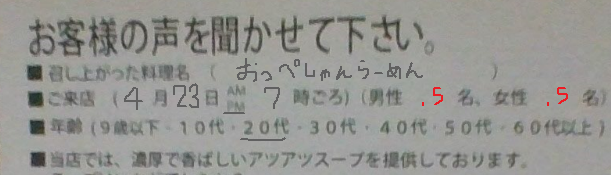 お客様の声を聞かせて下さい。
■召し上がった料理名（おっぺしゃんらーめん）
■ご来店（4月23日 AM PM 7時ごろ）（男性 .5名、女性 .5名）
■年齢（9歳以下・10代・20代・30代・40代・50代・60代以上）
■当店では、濃厚で香ばしいアツアツスープを提供しております。